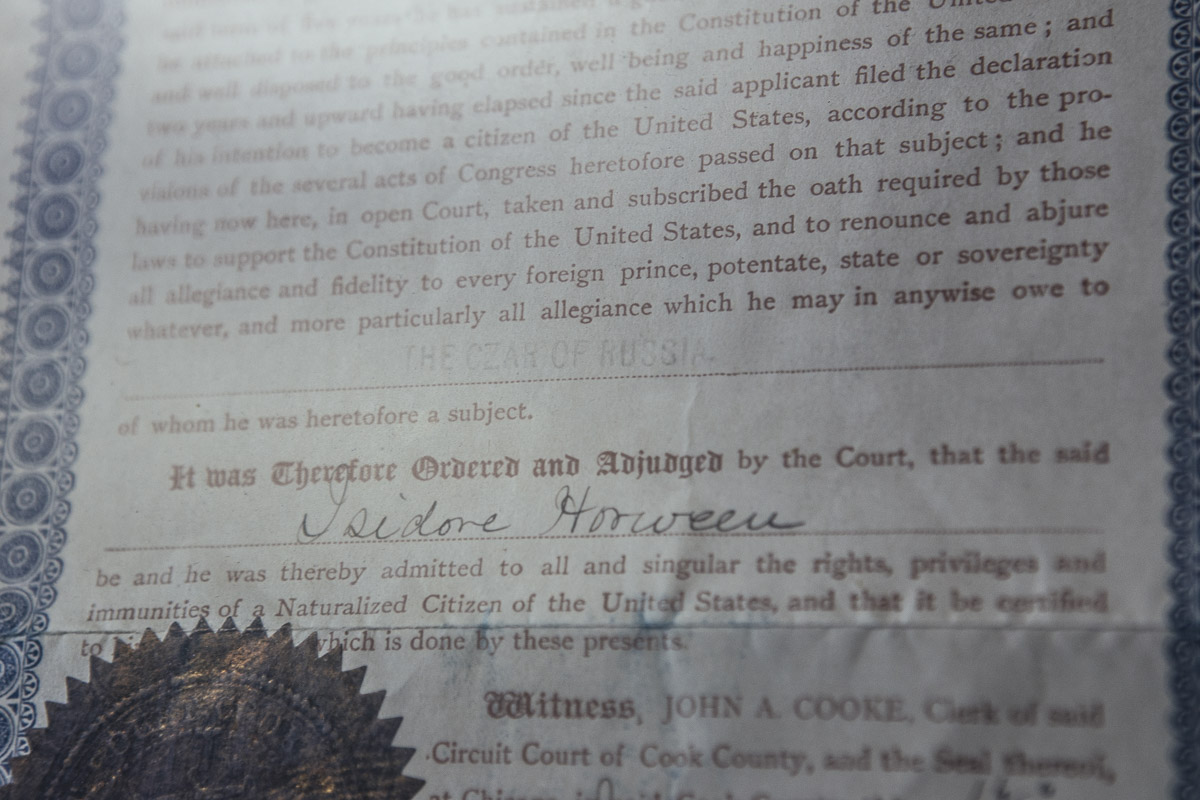 contained in the Constitution of the
and well disposed to the good order, well being and happiness of the same; and
two years and upward having elapsed since the said applicant filed the declaration
of his intention to become a citizen of the United States, according to the pro-
visions of the several acts of Congress heretofore passed on that subject; and he
having now here, in open Court, taken and subscribed the oath required by those
laws to support the Constitution of the United States, and to renounce and abjure
all allegiance and fidelity to every foreign prince, potentate, state or sovereignty
whatever, and more particularly all allegiance which he may in anywise owe to
THE CZAR OF RUSSIA.
of whom he was heretofore a subject.
It was Therefore Ordered and Adjudged by the Court, that the said
Isidore Horween
be and he was thereby admitted to all and singular the rights, privileges and
immunities of a Naturalized Citizen of the United States, and that it be certified
to which is done by these presents.
Witness, JOHN A. COOKE, Clerk of said
Circuit Court of Cook County, and the Seal thereof,